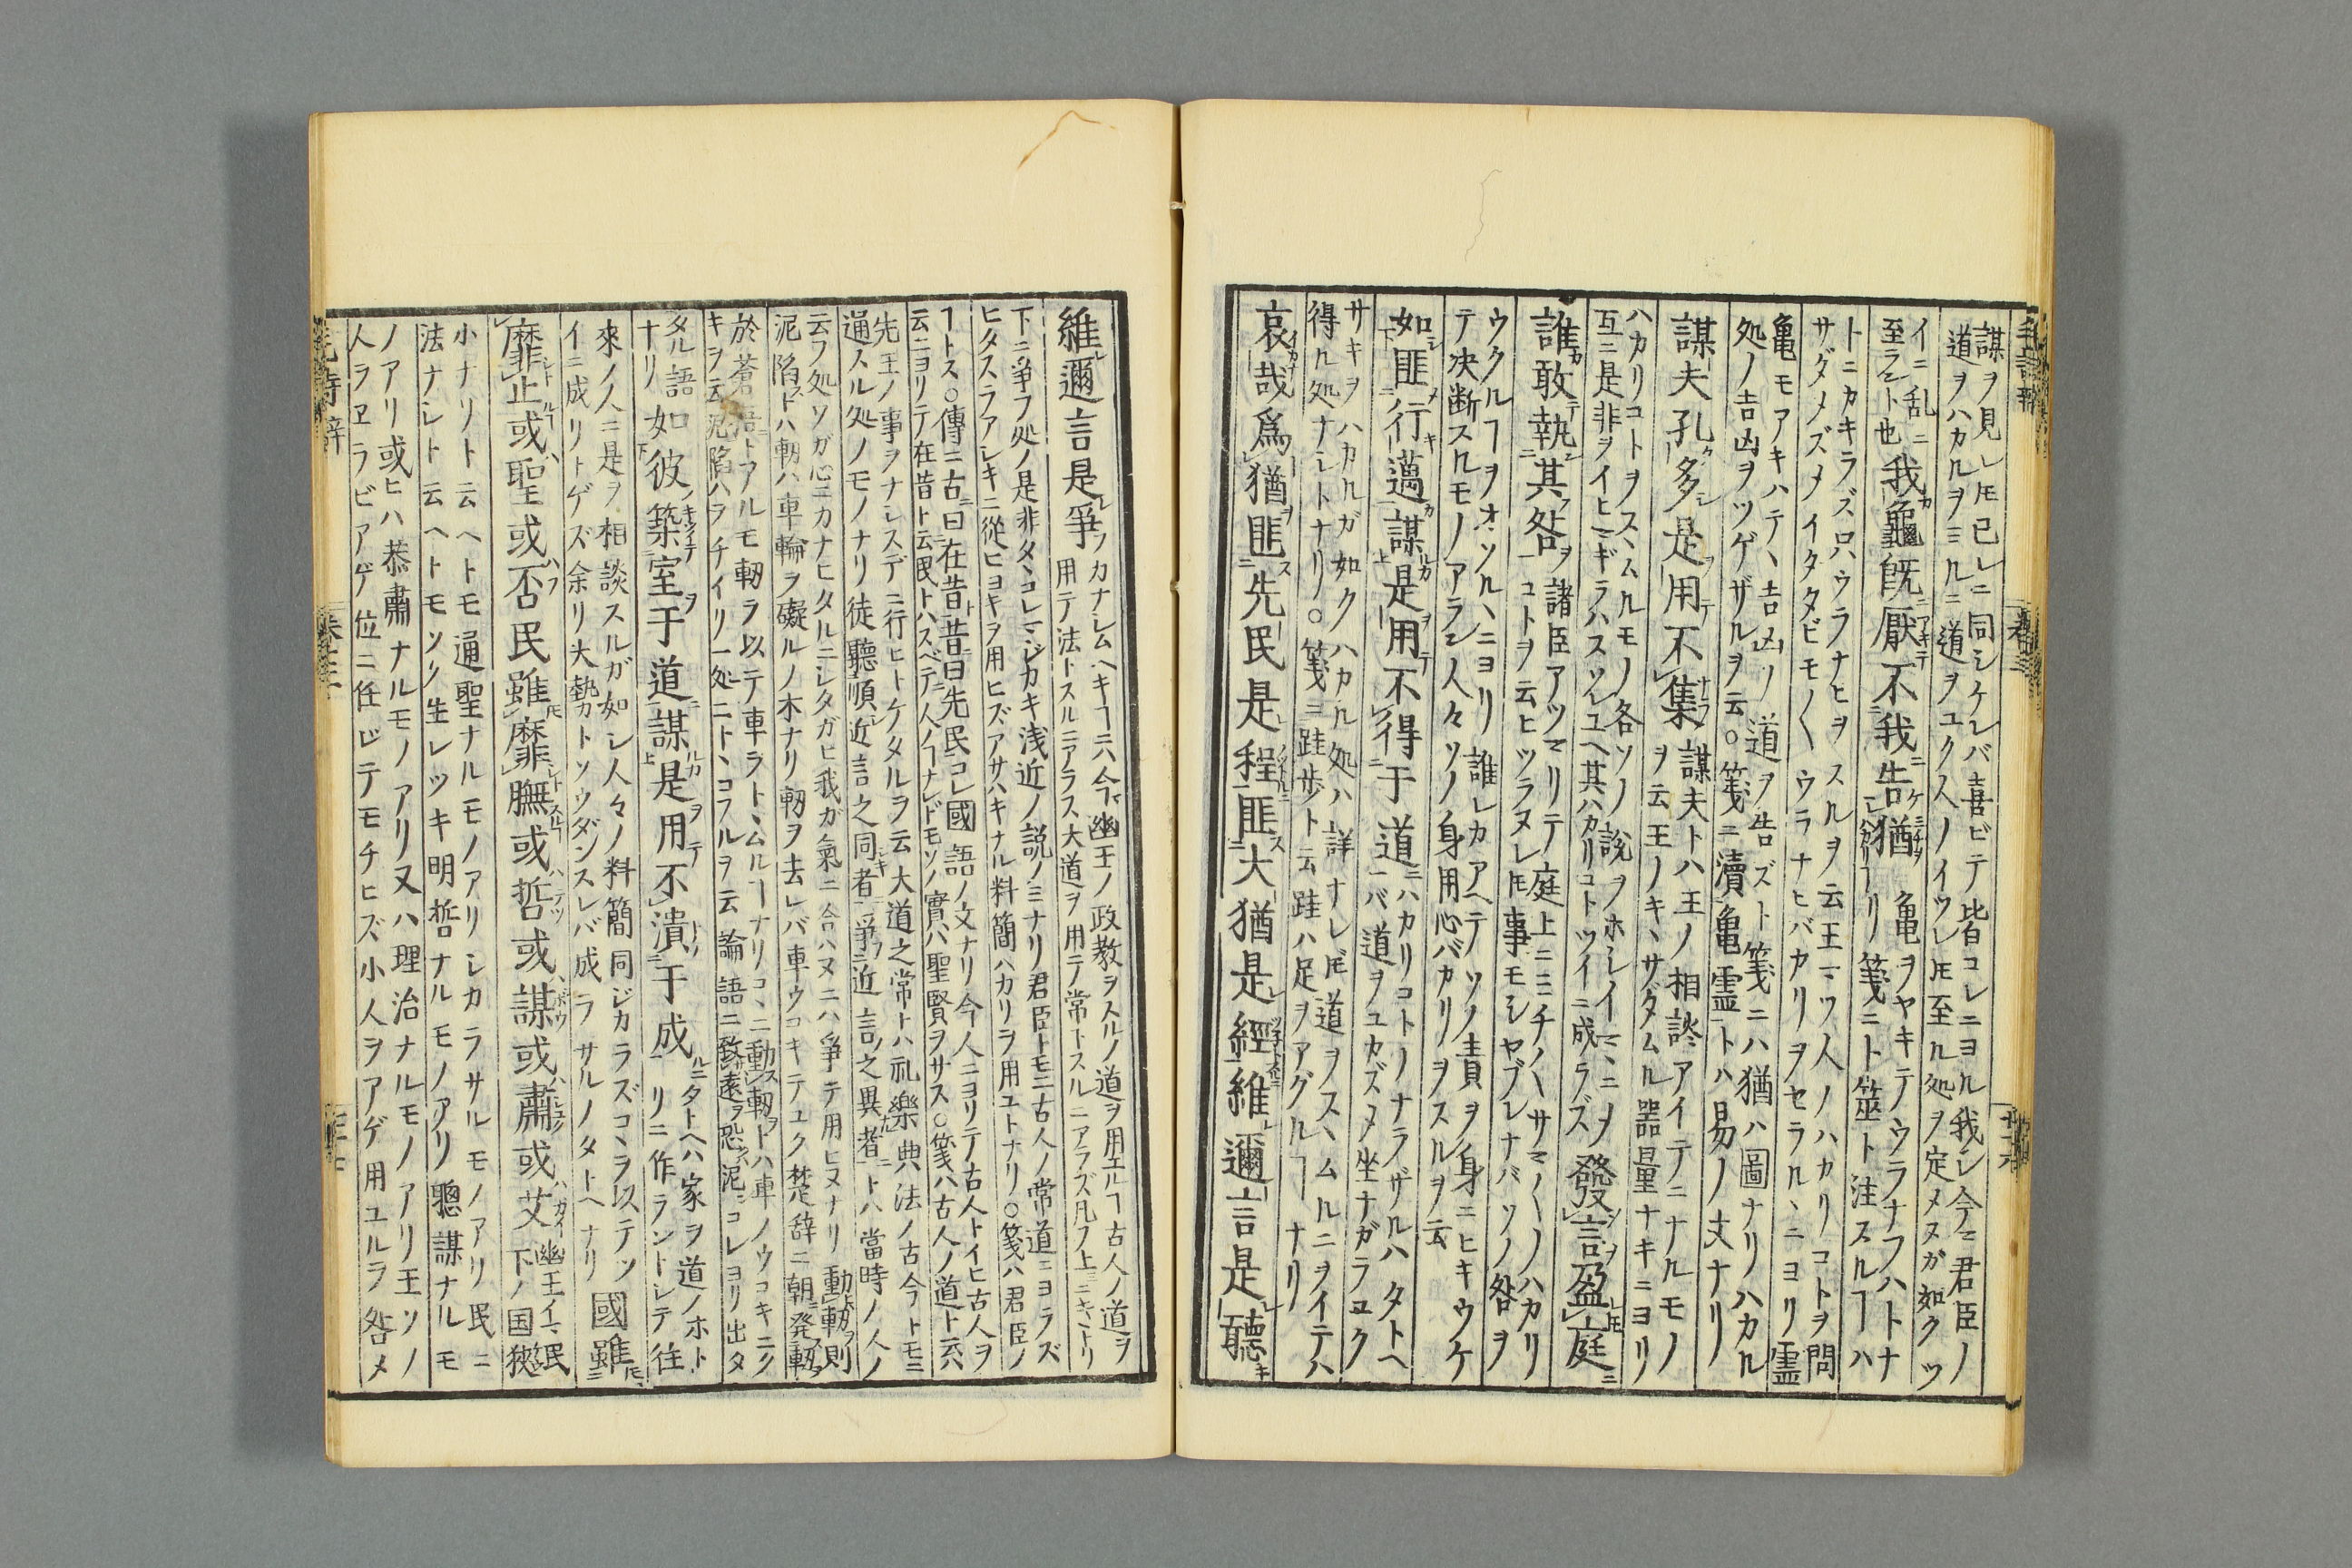 謀ヲ見レ𪜈已レニ同シケレバ喜ビテ皆コレニヨル我レ今マ君臣ノ
道ヲハカルヲミルニ道ヲユク人ノイツレ𪜈至ル処ヲ定メヌガ如クツ
イニ乱ニ
至ラント也
我龜既厭不我告猶
亀ヲヤキテウラナフハトナ
リ箋ニト筮ト注スルヿハ
トニカキラズ只ウラナヒヲスルヲ云王マツ人ノハカリコトヲ問
サダメズメイタタビモ〳〵ウラナヒバカリヲセラル、ニヨリ霊
亀モアキハテ、吉凶ノ道ヲ告ズト箋ニハ猶ハ圖ナリハカル
処ノ吉凶ヲツゲザルヲ云○箋ニ瀆亀霊トハ易ノ文ナリ
謀夫孔多是用不集
謀夫トハ王ノ相談アイテニナルモノ
ヲ云王ノキ、サダムル器量ナキニヨリ
ハカリコトヲス、ムルモノ各ソノ説ヲホシイマ、ニメ
互ニ是非ヲイヒ
發言盈庭
誰敢執其咎
諸臣アツマリテ庭上ニミチ〳〵サマ〳〵ノハカリ
コトヲ云ヒツラヌレ𪜈事モシヤブレナバソノ咎ヲ
ウクルヿヲオソル、ニヨリ誰レカアヘテソノ責ヲ身ニヒキウケ
テ决断スルモノアラン人々ソノ身用心バカリヲスルヲ云
如匪行邁謀是用不得于道
ハカリコトノナラザルハタトヘ
バ道ヲユカズメ坐ナガラユク
サキヲハカルガ如クハカル処ハ詳ナレ𪜈道ヲス、ムルニヲイテハ
得ル処ナシトナリ○箋ニ跬歩ト云跬ハ足ヲアグルヿナリ
哀哉爲猶匪先民是程匪大猶是經維邇言是聽
維邇言是爭
カナシムヘキヿハ今マ幽王ノ政教ヲスルノ道ヲ用ユルヿ古人ノ道ヲ
用テ法トスルニアラス大道ヲ用テ常トスルニアラズ
下ニ争フ処ノ是非タ、コレマジカキ浅近ノ説ノミナリ君臣トモニ古人ノ常道ニヨラズ
ヒタスラアシキニ従ヒヨキヲ用ヒズアサハキナル料簡ハカリヲ用ユトナリ○箋ハ君臣ノ
ヿトス○傳ニ古曰在昔昔曰先民コレ國語ノ文ナリ今人ニヨリテ古人トイヒ古人ヲ
云ニヨリテ在昔ト云民トハスベテ人ヿナレドモソノ實ハ聖賢ヲサス○箋ハ古人ノ道ト云ハ
先王ノ事ヲナシスデニ行ヒトケタルヲ云大道之常トハ礼樂典法ノ古今トモニ
通スル処ノモノナリ徒聽順近言之同者爭近言之異者トハ當時ノ人ノ
云フ処ソガ心ニカナヒタルニシタガヒ我ガ氣ニ合ハヌニハ爭テ用ヒヌナリ動軔則
泥陷トハ軔ハ車輪ヲ礙ルノ木ナリ軔ヲ去レバ車ウコキテユク楚辞ニ朝発軔
於蒼梧トアルモ軔ヲ以テ車ヲト、ムルヿナリコ、ニ動軔トハ車ノウコキニク
キヲ云泥陷ハヲチイリ一処ニト、コフルヲ云論語ニ致遠恐泥コレヨリ出タ
タル語
ナリ
如彼築室于道謀是用不潰于成
タトヘハ家ヲ道ノホト
リニ作ラントシテ往
來ノ人ニ是ヲ相談スルガ如シ人々ノ料簡同ジカラズコ、ヲ以テツ
イニ成リトゲズ余リ大勢カトソウダンスレバ成ラサルノタトヘナリ
國雖
靡止或聖或否民雖靡膴或哲或謀或肅或艾
幽王イマ民
下ノ国狹
小ナリト云ヘトモ通聖ナルモノアリシカラサルモノアリ民ニ
法ナシト云ヘトモソノ生レツキ明哲ナルモノアリ聰謀ナルモ
ノアリ或ヒハ恭肅ナルモノアリ又ハ理治ナルモノアリ王ソノ
人ヲヱラビアゲ位ニ任ジテモチヒズ小人ヲアゲ用ユルヲ咎メ